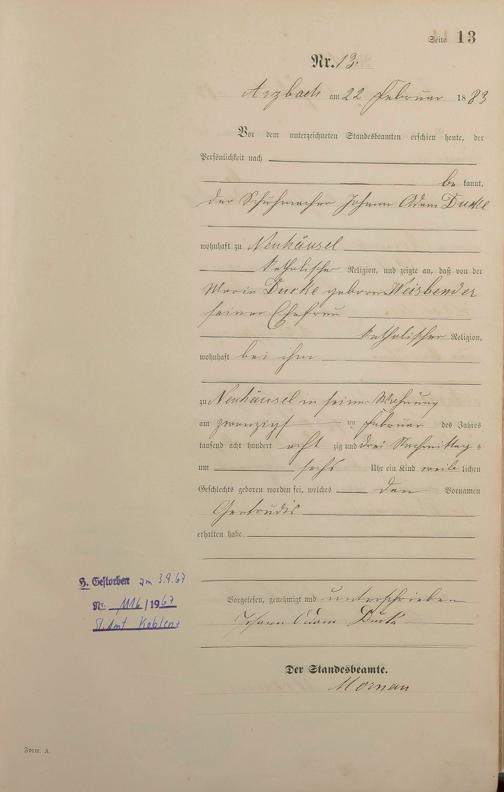 Seite 13
Nr. 13.
Arzbach am 22 Februar 1883
Vor dem unterzeichneten Standesbeamten erschien heute, der
Persönlichkeit nach
be kannt,
der Schuhmacher Johann Adam Ducke
wohnhaft zu Neuhäusel
katholischer Religion, und zeigte an, daß von der
Maria Ducke geborene Weisbender
seiner Ehefrau
katholischer Religion,
wohnhaft bei ihm
zu Neuhäusel in seiner Wohnung
am zwanzigsten Februar des Jahres
tausend acht hundert acht zig und drei Nachmittags
um sechs Uhr ein Kind weib lichen
Geschlechts geboren worden sei, welches den Vornamen
Gertrudis
erhalten habe
H. Gestorben am 3.9.67
Nr. 1116/1967
St.Amt Koblenz
Vorgelesen, genehmigt und unterschrieben
Johann Adam Ducke
Der Standesbeamte.
Form. A.